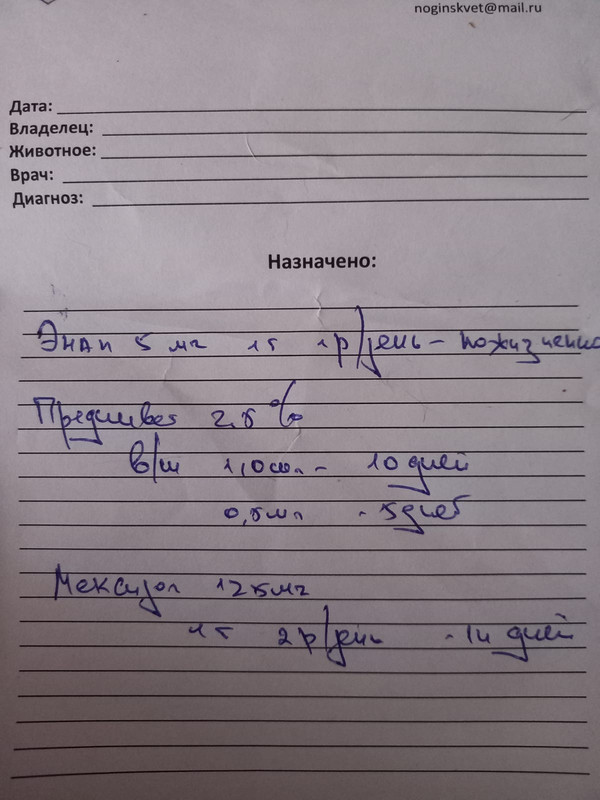 noginskvet@mail.ru
Дата:
Владелец:
Животное:
Врач:
Диагноз:
Назначено:
Энап 5 мг 1т 1р/день - пожизненно
Преднивет 2,5%
в/м 1,0 мл - 10 дней
0,5 мл - 5 дней
Мексидол 125 мг
1т 2р/день - 14 дней